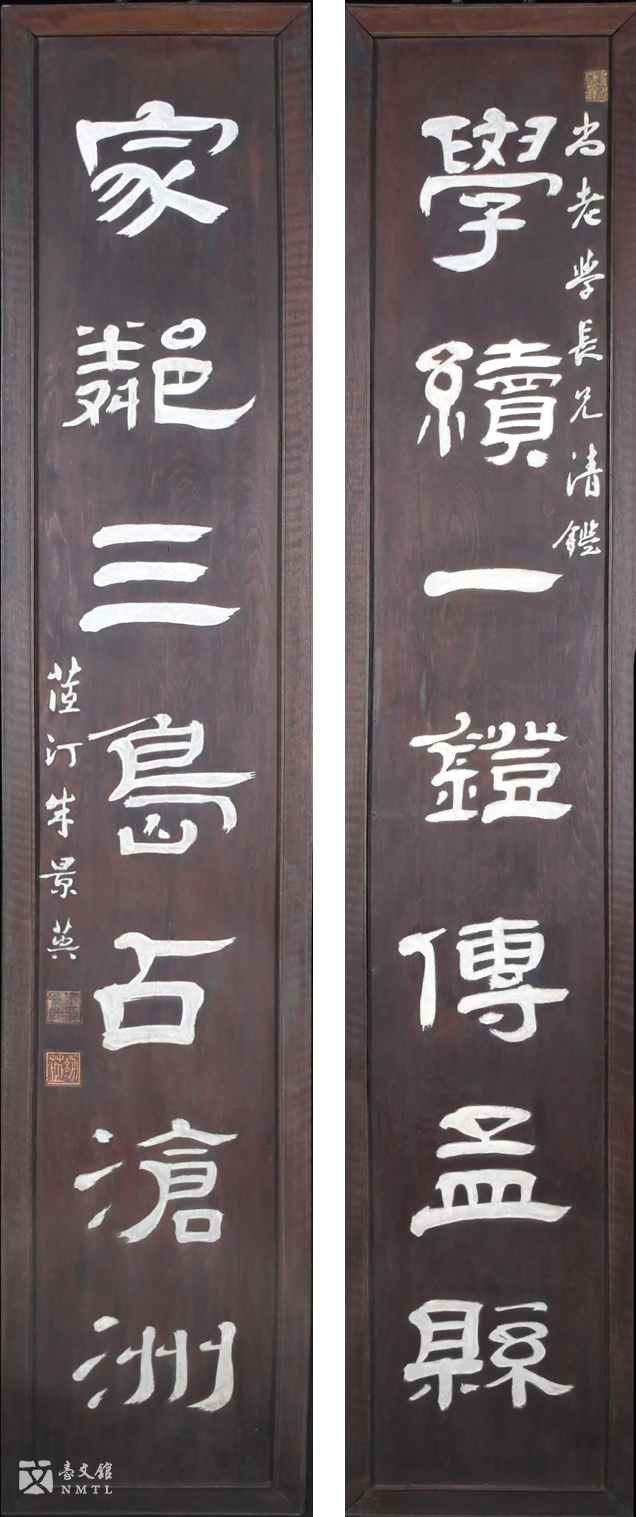 尚老學長兄清鑑
學續一鐙傳孟縣
家鄰三島占滄洲
茝汀朱景英
臺文館
NMTL